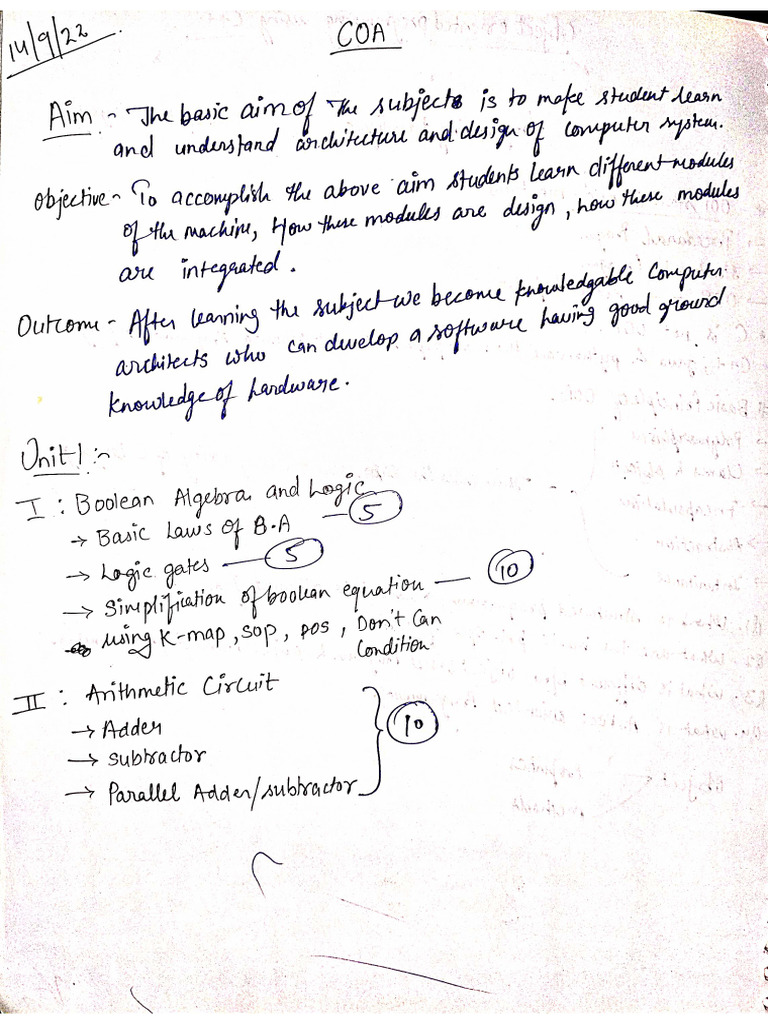 14/9/22
COA
Aim :- The basic aim of the subject is to make student learn
and understand architecture and design of computer system.
Objective - To accomplish the above aim students learn different modules
of the machine, How these modules are design, how these modules
are integrated.
Outcome - After learning the subject we become knowledgable Computer
architects who can develop a software having good ground
knowledge of hardware.
Unit 1 :-
I : Boolean Algebra and Logic
→ Basic Laws of B.A — 5
→ Logic gates — 5
→ Simplification of boolean equation — 10
using K-map, SOP, POS, Don't Can
Condition
II : Arithmetic Circuit
→ Adder
→ Subtractor } 10
→ Parallel Adder/subtractor